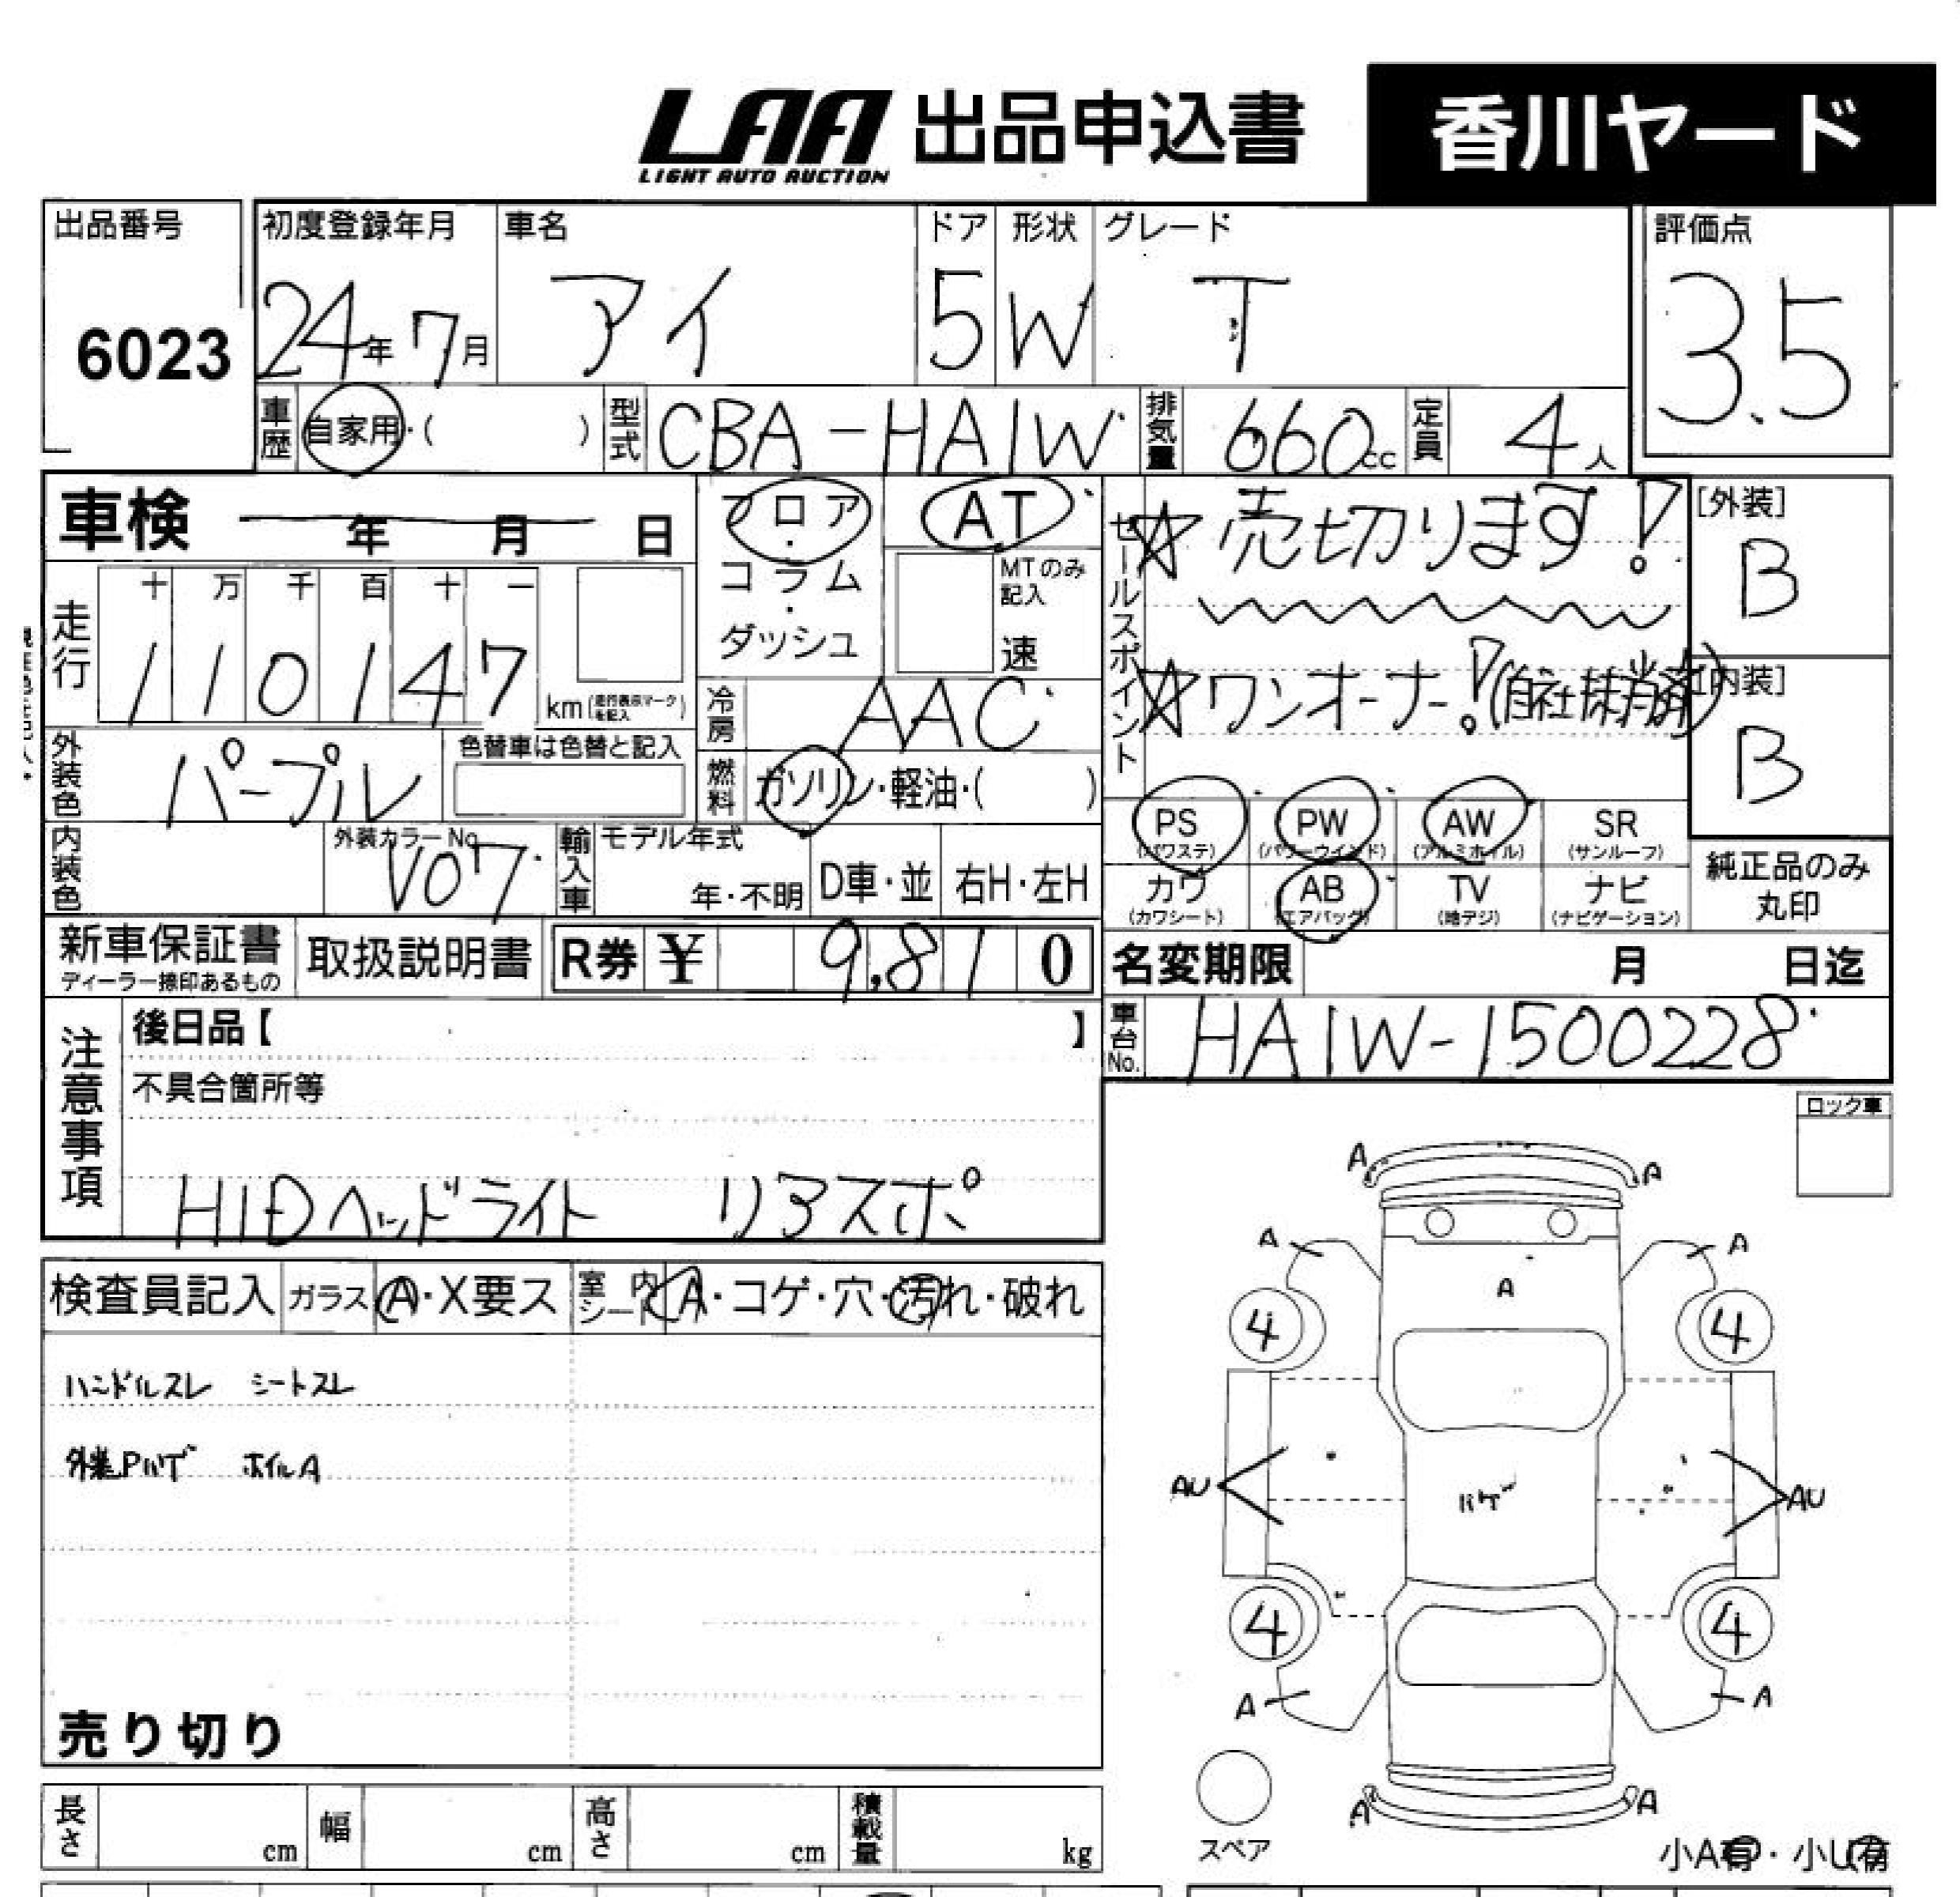 LAA 出品申込書 香川ヤード
LIGHT AUTO AUCTION
出品番号 初度登録年月 車名 ドア 形状 グレード 評価点
6023 24年 7月 アイ 5 W T 3.5
車歴 自家用・( ) 型式 CBA-HA1W 排気量 660cc 定員 4人
車検 年 月 日 フロア・コラム・ダッシュ AT
MTのみ記入 速
セールスポイント ☆売切ります!
☆ワンオーナー!(自社抹消済)
[外装] B
[内装] B
走行 十 万 千 百 十 一
110147 km(走行表示マークを記入)
冷房 AAC
外装色 パープル 色替車は色替と記入
燃料 ガソリン・軽油・( )
内装色 外装カラーNo. V07 輸入車 モデル年式 年・不明 D車・並 右H・左H
PS (パワステ) PW (パワーウインド) AW (アルミホイル) SR (サンルーフ)
カワ (カワシート) AB (エアバッグ) TV (地デジ) ナビ (ナビゲーション)
純正品のみ丸印
新車保証書 取扱説明書 R券 ¥ 9,810
ディーラー捺印あるもの
名変期限 月 日迄
車台No. HA1W-1500228
注意事項 後日品【 】
不具合箇所等
HIDヘッドライト リアスポ
ロック車
検査員記入 ガラス A・X要ス 室内シート A・コゲ・穴・汚れ・破れ
ハンドルスレ シートスレ
外装Pハゲ ホイルA
売り切り
A A
A A
A
4 4
AU ハゲ AU
4 4
A A
A A
スペア
小A有・小U有
長さ cm 幅 cm 高さ cm 積載量 kg